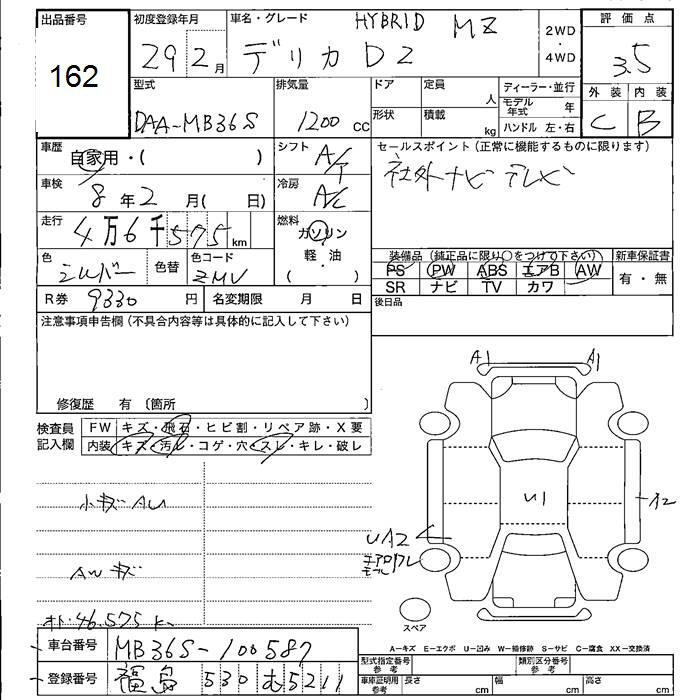 出品番号 初度登録年月 車名・グレード HYBRID MZ 2WD・4WD 評価点
162 29 2月 デリカD2 3.5
型式 排気量 ドア 定員 人 ディーラー・並行 外装 内装
DAA-MB36S 1200 cc 形状 積載 kg モデル年式 年 C B
ハンドル 左・右
車歴 自家用・( ) シフト A/T セールスポイント (正常に機能するものに限ります)
車検 8年2月( 日) 冷房 A/C 社外ナビ テレビ
走行 4万6千575km 燃料 ガソリン
軽・油
( )
色 シルバー 色替 色コード ZMV 装備品 (純正品に限り〇をつけて下さい) 新車保証書
PS PW ABS エアB AW 有・無
SR ナビ TV カワ
R券 9330 円 名変期限 月 日 後日品
注意事項申告欄 (不具合内容等は具体的に記入して下さい)
修復歴 有 〔箇所 〕
検査員記入欄 FW キズ・飛石・ヒビ割・リペア跡・X要
内装 キズ・汚れ・コゲ・穴・スレ・キレ・破レ
A1 A1
U1
A2
UA2
小キズAU
AWキズ
オト・46,575k
スペア
A-キズ E-エクボ U-凹み W-補修跡 S-サビ C-腐食 XX-交換済
車台番号 MB36S-100587
型式指定番号 参考 類別区分番号 参考
登録番号 福島 530 む 5211
車庫証明用 参考 長さ cm 幅 cm 高さ cm